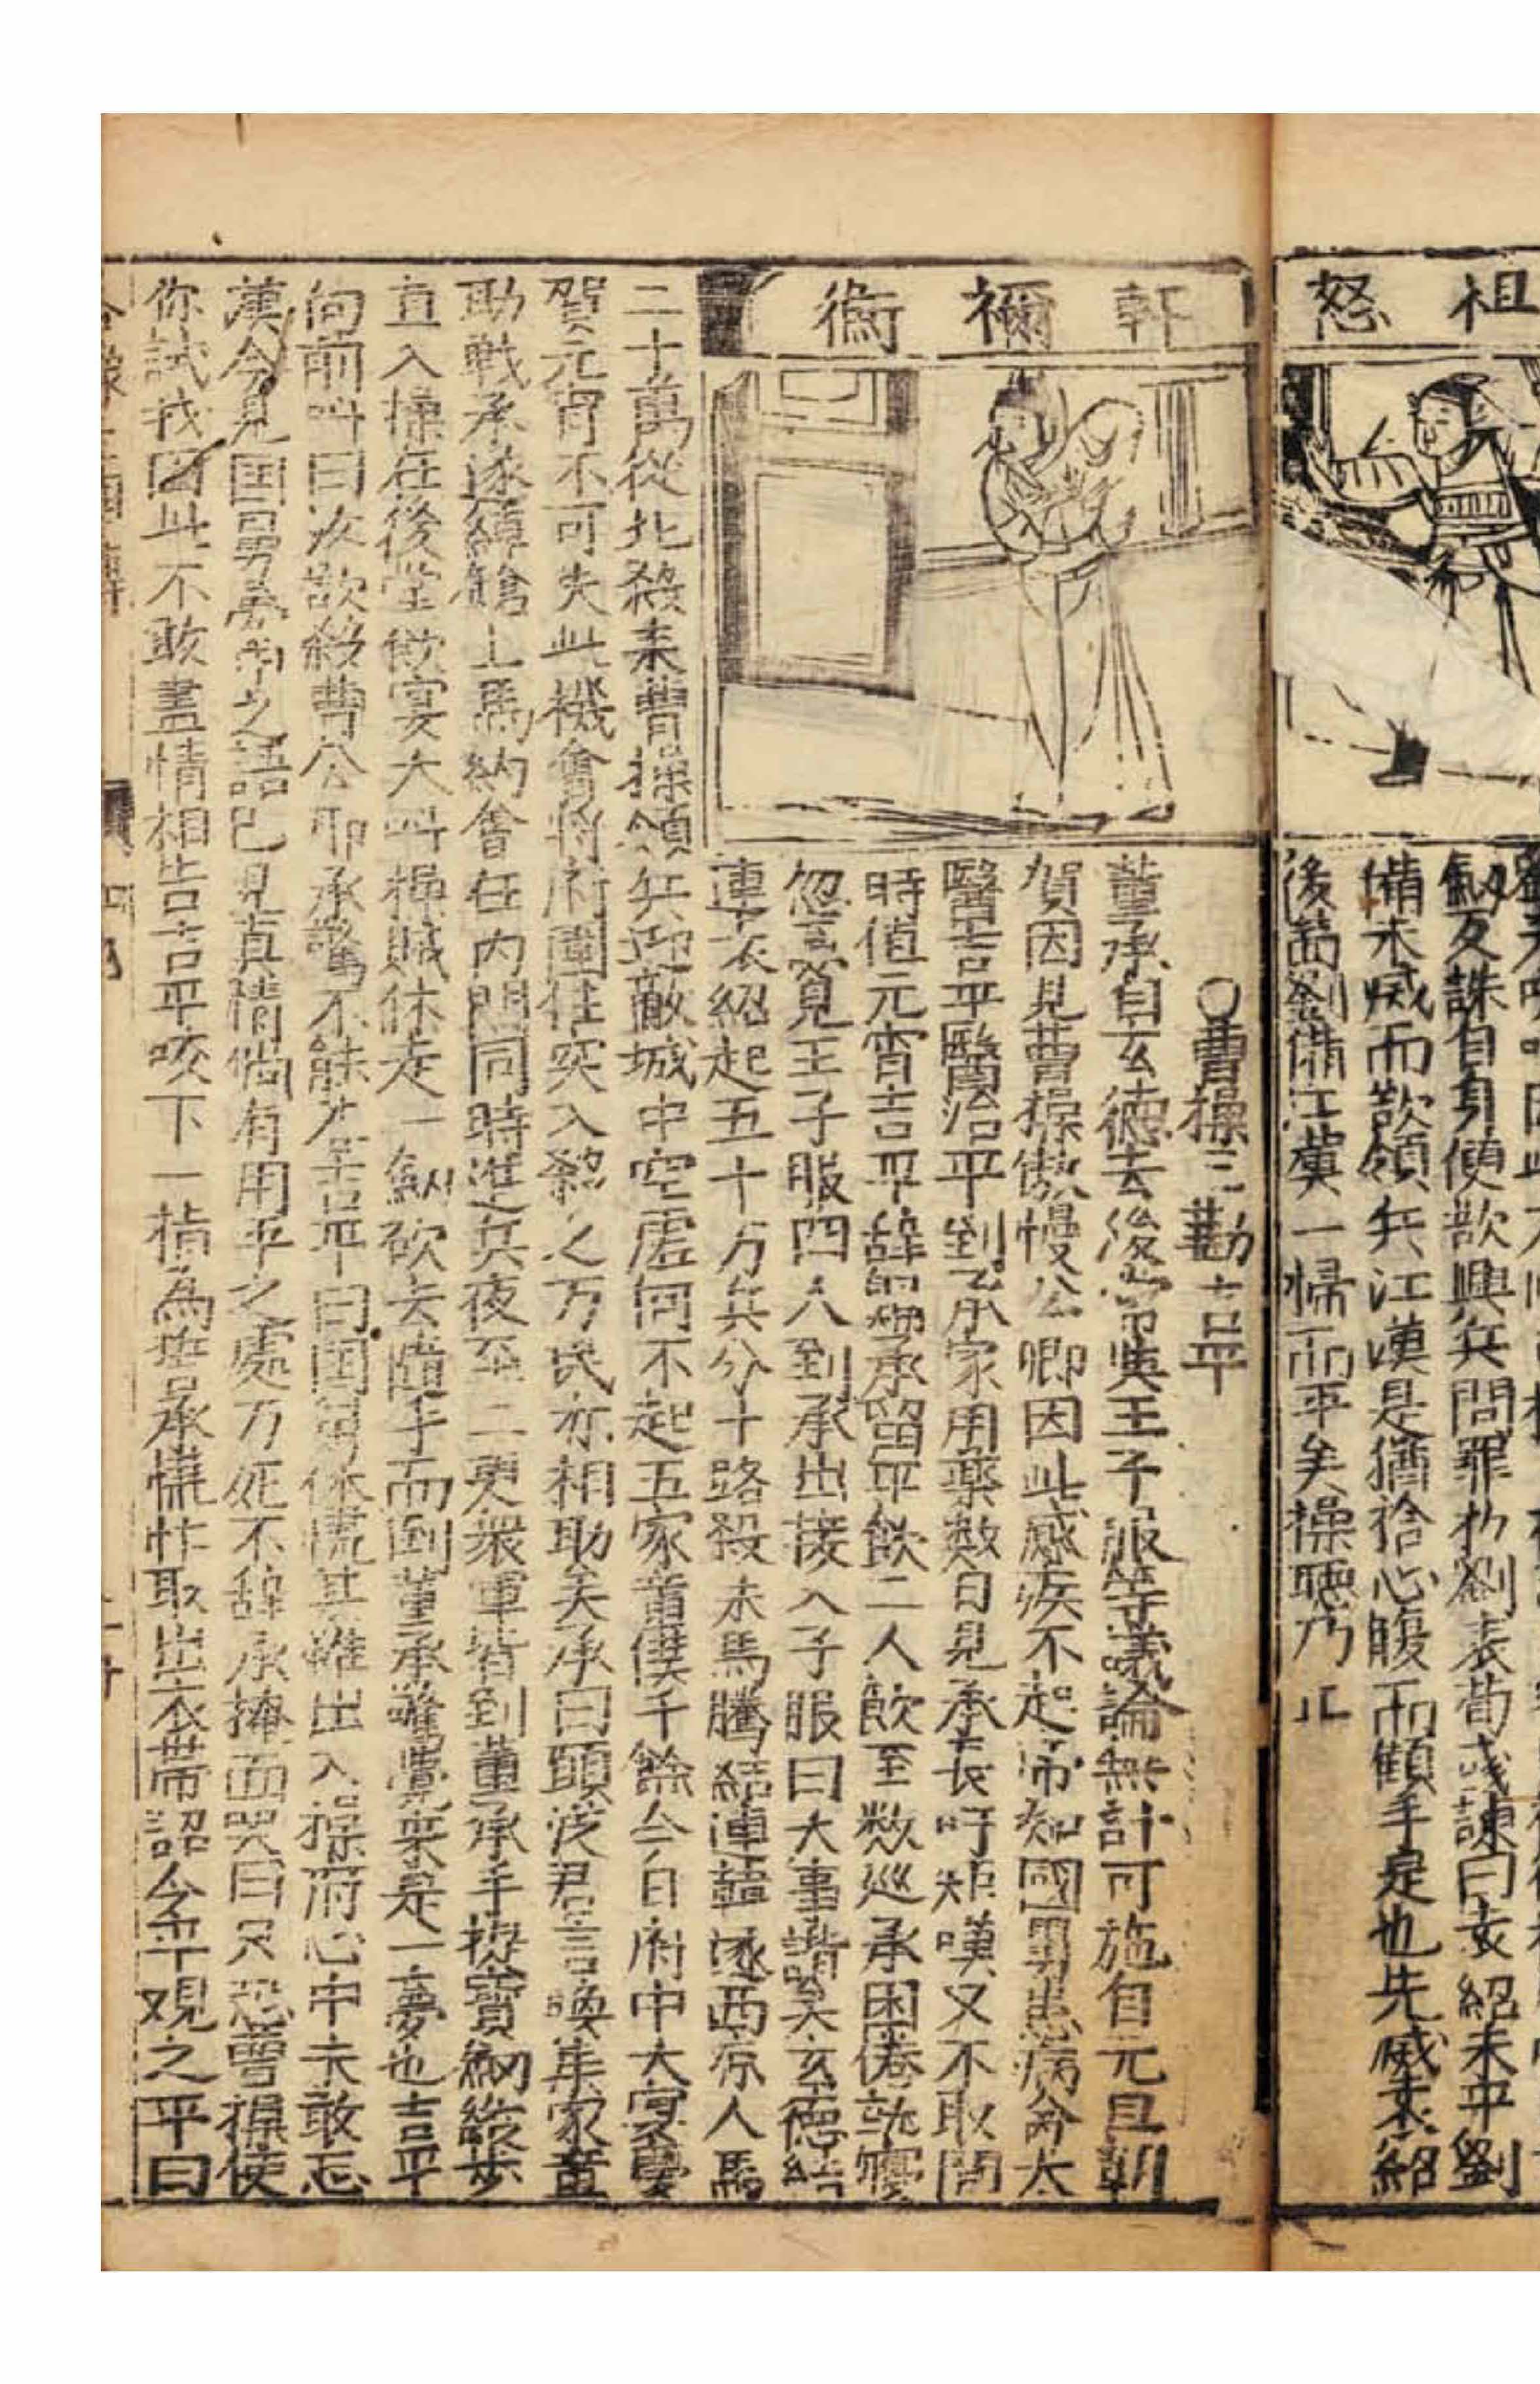 祖
怒
剱又誅有身便欲興兵問罪於劉表荀彧諫曰袁紹未平劉
備未滅而欲領兵江漢是猶捨心腹而顧手足也先滅袁紹
後㓕劉備江漢一掃而平矣操聽乃止
軒禰衡
○曹操三勘吉平
董承自玄德去後常與王子服等議論無計可施自元旦朝
賀因見曹操傲慢公卿因此感疾不起帝知國舅患病命太
醫吉平醫治平到承家用藥数日見承長吁短嘆又不敢問
時值元宵吉平辞歸承留平飲二人飲至数巡承困倦就寝
忽言覓王子服四人到承出接入子服曰大事諧矣玄德結
連袁紹起五十万兵分十路殺來馬騰結連韓遂西凉人馬
二十萬從北殺來曹操領兵迎敵城中空虛何不起五家童僕千餘今日府中大宴慶
賀元宵不可失此機會將府圍住突入殺之万民亦相助矣承曰頭沒君言喚集家童
助戰承遂綽鎗上馬約會在內門同時進兵夜至二更衆軍皆到董承手提寶劍縱步
直入操在後堂飲宴大叫操賊休走一劍砍去隨手而倒董承驚覺來是一夢也吉平
向前叫曰汝欲殺曹公耶承驚不能答吉平曰国舅休慌某雖出入操府心中未敢忘
漢今見国舅夢中之語已見真情倘有用平之處万死不辞承掩面哭曰只恐曹操使
你試我因此不敢盡情相告吉平咬下一指為誓承慌忙取出衣帶詔令平观之平曰